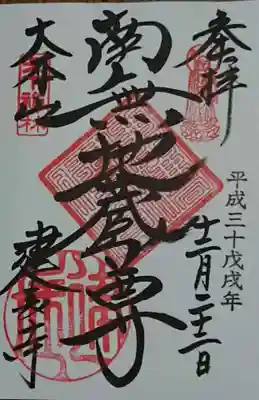 奉拝
平成三十戊戌年
十二月二十二日
南無地蔵尊
大本山
建長寺